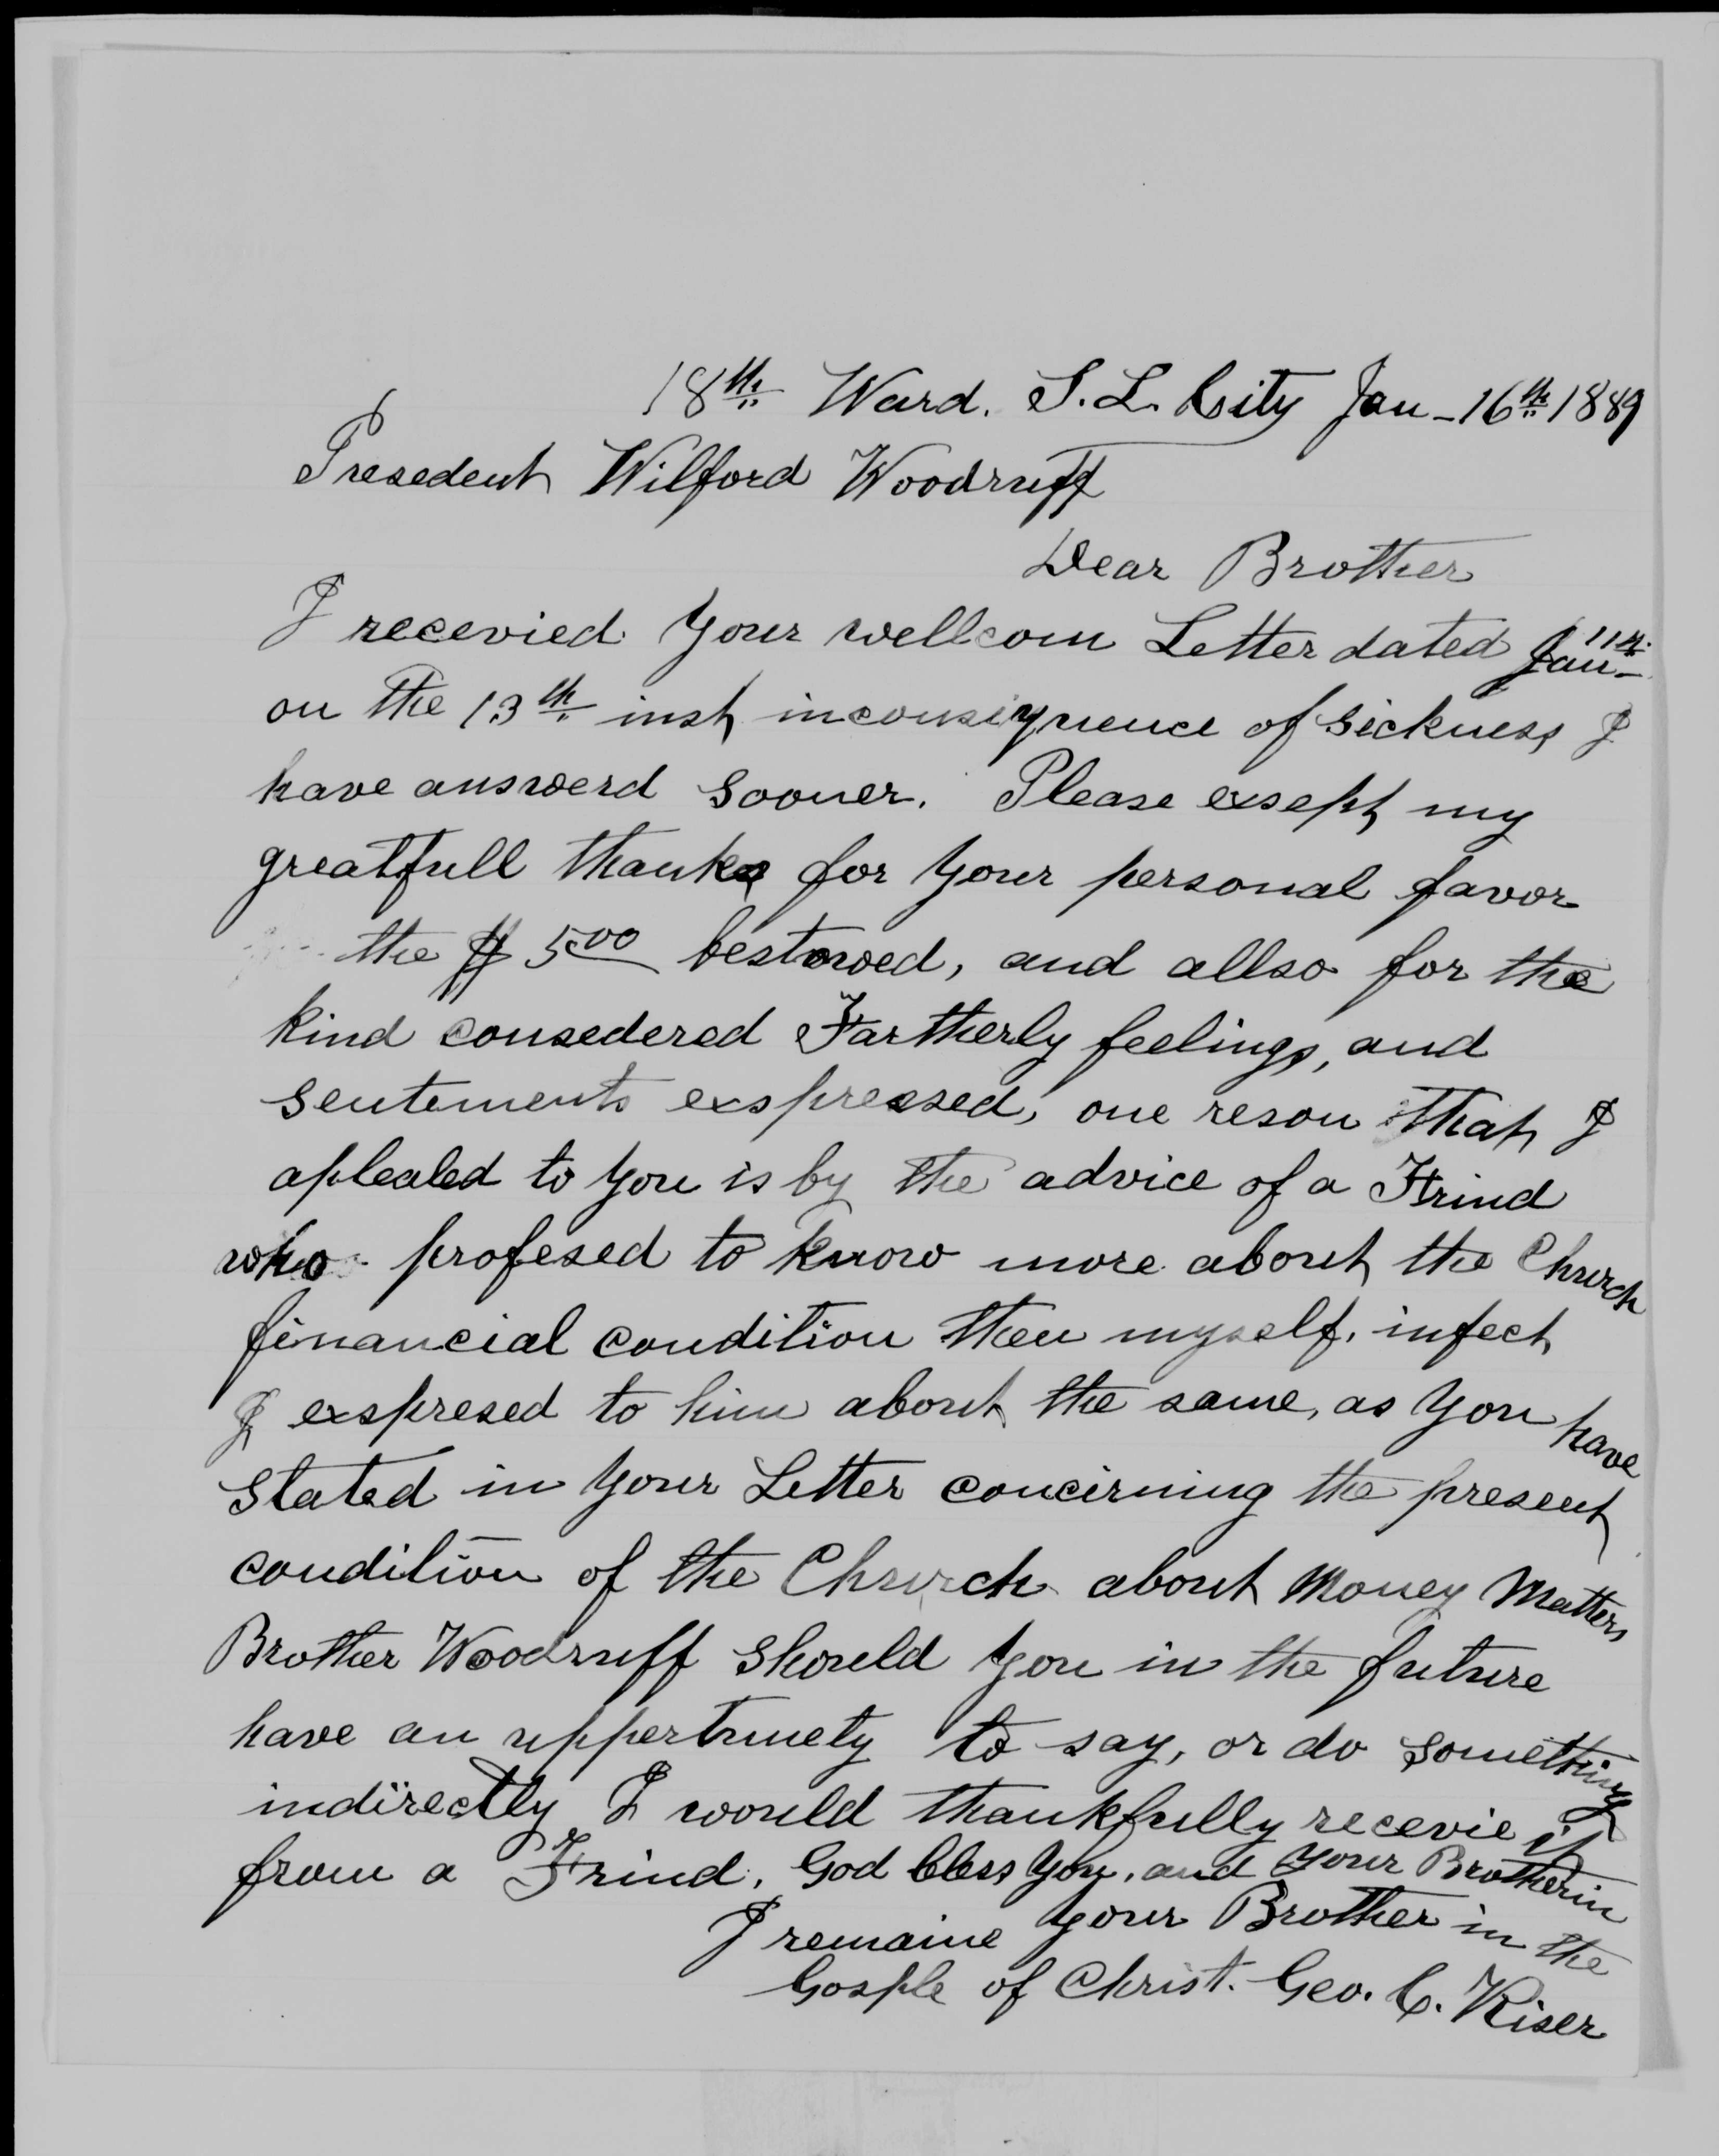 18th Ward. S. L. City Jan - 16th 1889
Presedent Wilford Woodruff
Dear Brother
I recevied your wellcom Letter dated Jan 11th
on the 13th inst inconsiquence of sickness I
have answerd sooner. Please exsept my
greatfull thanks for your personal favor
the $ 5.00 bestowed, and allso for the
kind consedered Fartherly feelings, and
sentements exspressed, one reson that I
aplealed to you is by the advice of a Frind
who profesed to know more about the Church
financial condition then myself. infect
I exspresed to him about the same, as you have
stated in your Letter concirning the present
condition of the Church about Money Matters
Brother Woodruff should you in the future
have an uppertunety to say, or do something
indirectly I would thankfully recevie it
from a Frind. God bless you, and your Brotherin
I remaine your Brother in the
Gosple of Christ. Geo. C. Riser